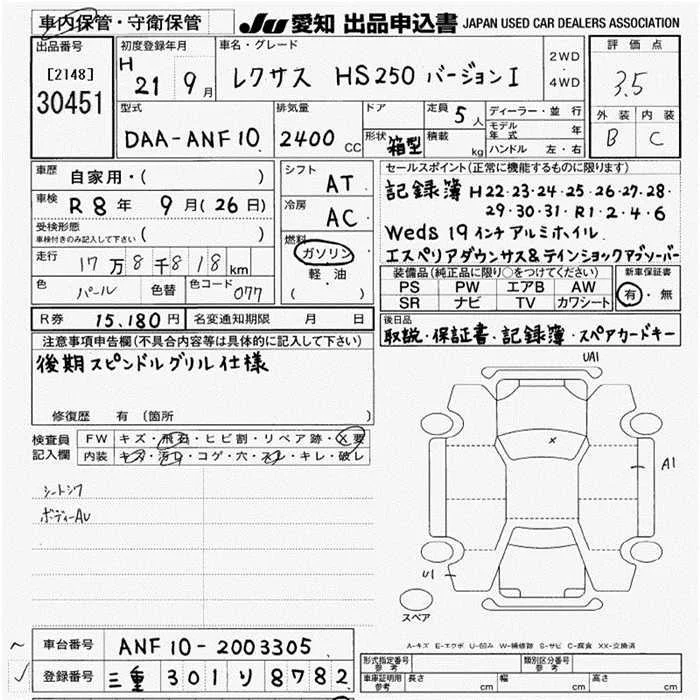 車内保管・守衛保管
JU 愛知 出品申込書 JAPAN USED CAR DEALERS ASSOCIATION
出品番号
[2148]
30451
初度登録年月
H 21 9月
車名・グレード
レクサス HS250 バージョンI
2WD
・
4WD
評価点
3.5
外装 内装
B C
型式
DAA-ANF10
排気量
2400 CC
ドア
形状 箱型
定員 5人
積載 kg
ディーラー・並行
モデル年式 年
ハンドル 左・右
車歴 自家用・( )
車検 R8年 9月(26日)
受検形態
車検付きのみ記入して下さい ( )
走行 17万8千818km
色 パール 色替 色コード 077
シフト AT
冷房 AC
燃料
ガソリン
軽・油
( )
セールスポイント(正常に機能するものに限ります)
記録簿 H22・23・24・25・26・27・28・
29・30・31・R1・2・4・6
Weds 19インチアルミホイル
エスペリアダウンサス&テインショックアブソーバー
装備品(純正品に限り○をつけてください)
PS PW エアB AW
SR ナビ TV カワシート
新車保証書
有・無
R券 15,180円 名変通知期限 月 日
後日品
取説・保証書・記録簿・スペアカードキー
注意事項申告欄(不具合内容等は具体的に記入して下さい)
後期スピンドルグリル仕様
修復歴 有(箇所 )
検査員記入欄
FW キズ・飛石・ヒビ割・リペア跡・X要
内装 キズ・汚れ・コゲ・穴・スレ・キレ・破レ
シートシワ
ボディーAU
UA1
X
A1
U1
スペア
A-キズ E-エクボ U-凹み W-補修跡 S-サビ C-腐食 XX-交換済
車台番号 ANF10-2003305
登録番号 三重 301 ソ 8782
型式指定番号 参考
類別区分番号 参考
車庫証明用 参考 長さ cm 幅 cm 高さ cm